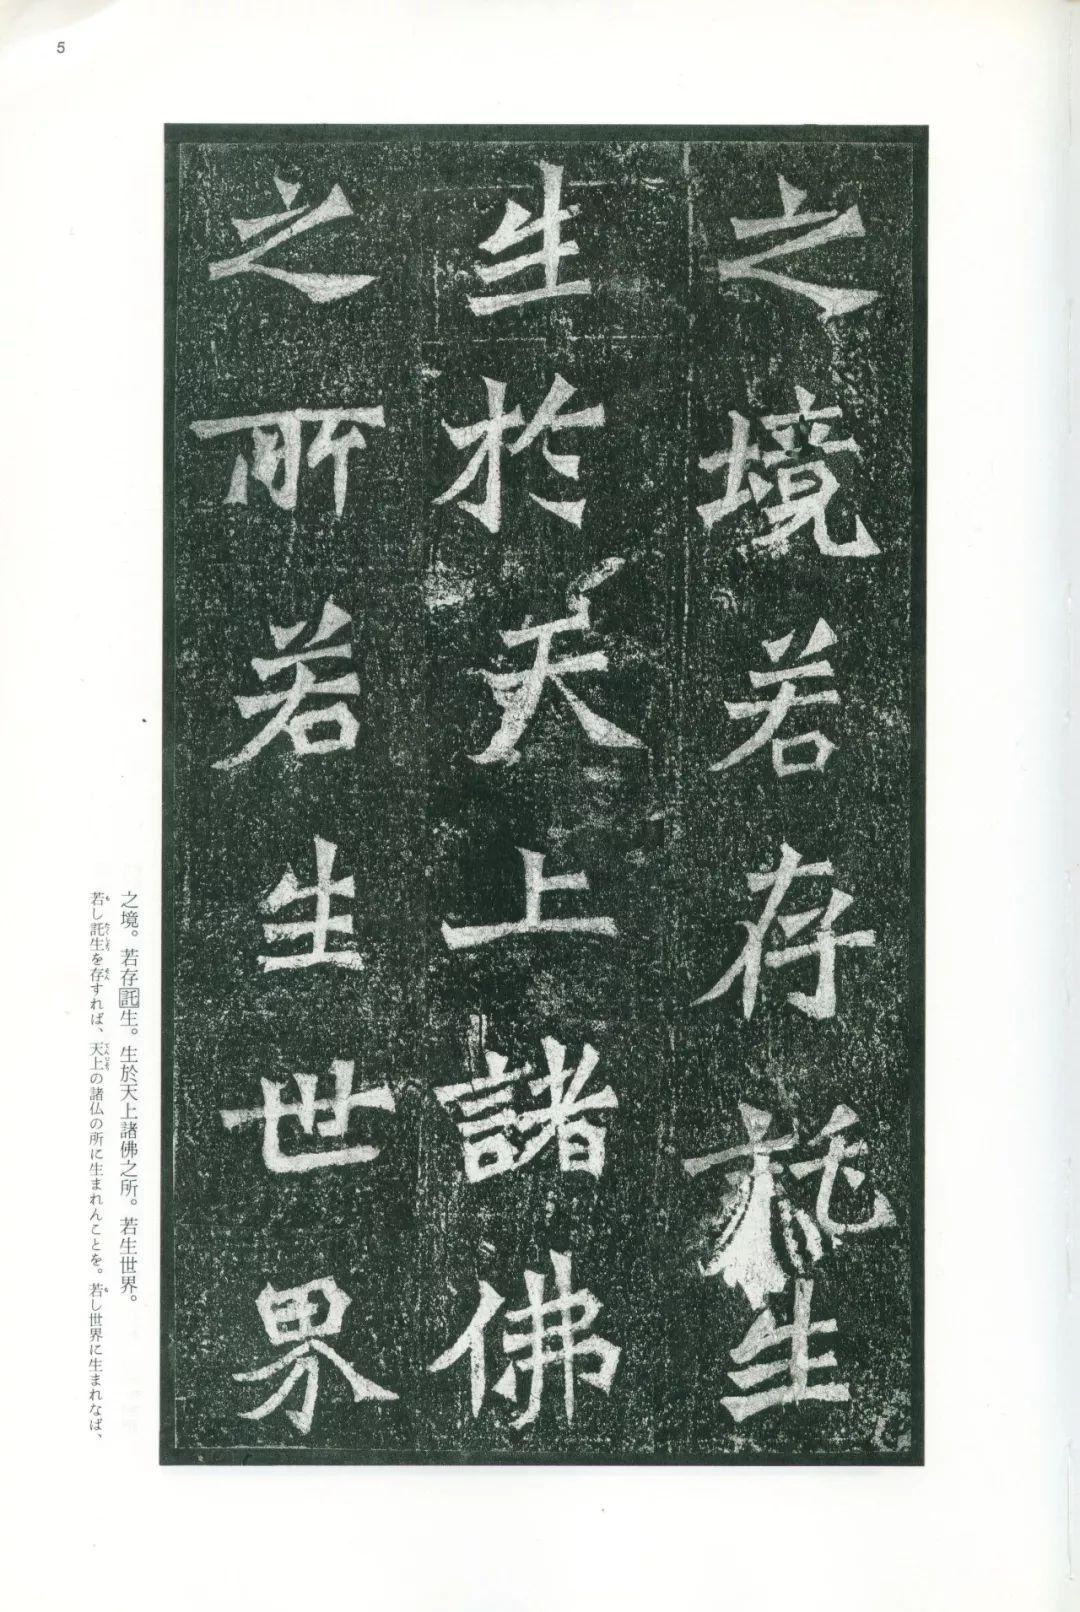 5
之境若存託生
生於天上諸佛
之所若生世界
之境。若存託生。生於天上諸佛之所。若生世界。
若し託生を存すれば、天上の諸仏の所に生まれんことを。若し世界に生まれなば、